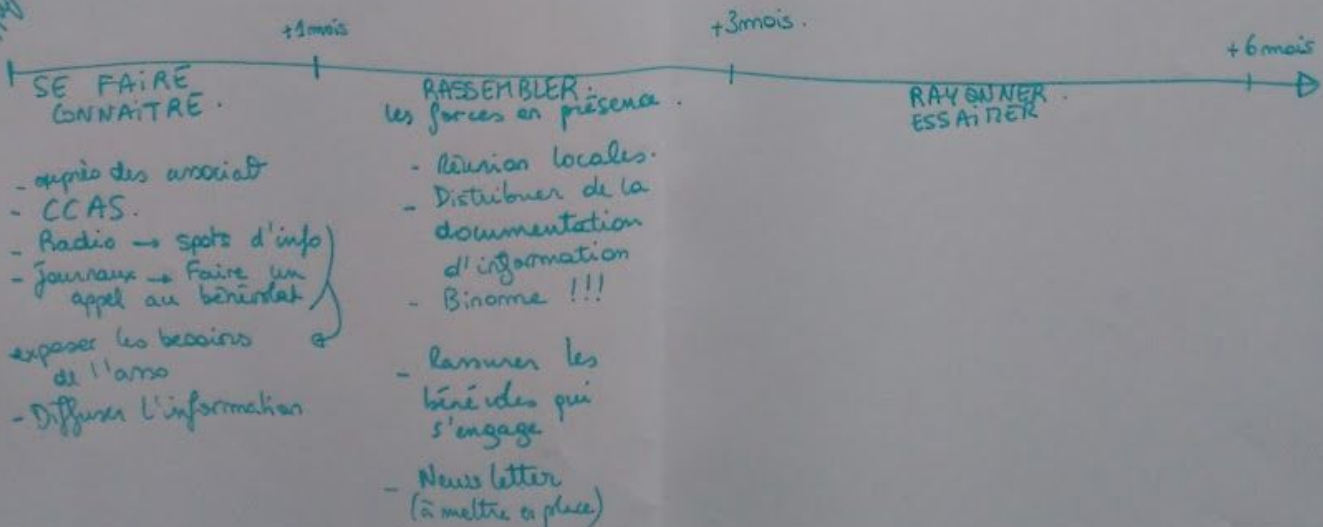 +1mois
+3mois.
+6mois
SE FAIRE
CONNAITRE.
- auprès des associat
- CCAS.
- Radio → spots d'info
- Journaux → Faire un
appel au bénévolat
exposer les besoins
de l'asso
- Diffuser l'information
RASSEMBLER.
les forces en présence.
- Réunion locales.
- Distribuer de la
documentation
d'information
- Binome !!!
- Rassurer les
bénévoles qui
s'engage
- News letter
(à mettre en place)
RAYONNER.
ESSAIMER